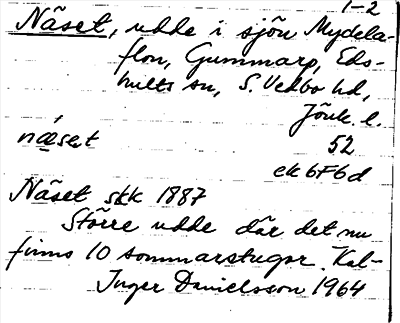 1-2
Näset, udde i sjön Mydela-
flon, Gummarp, Eds-
hults sn, S. Vedbo hd,
Jönk. l.
næset 52
ek 6F6d
Näset skk 1887
Större udde där det nu
finns 10 sommarstugor. Kal-
Inger Danielsson 1964